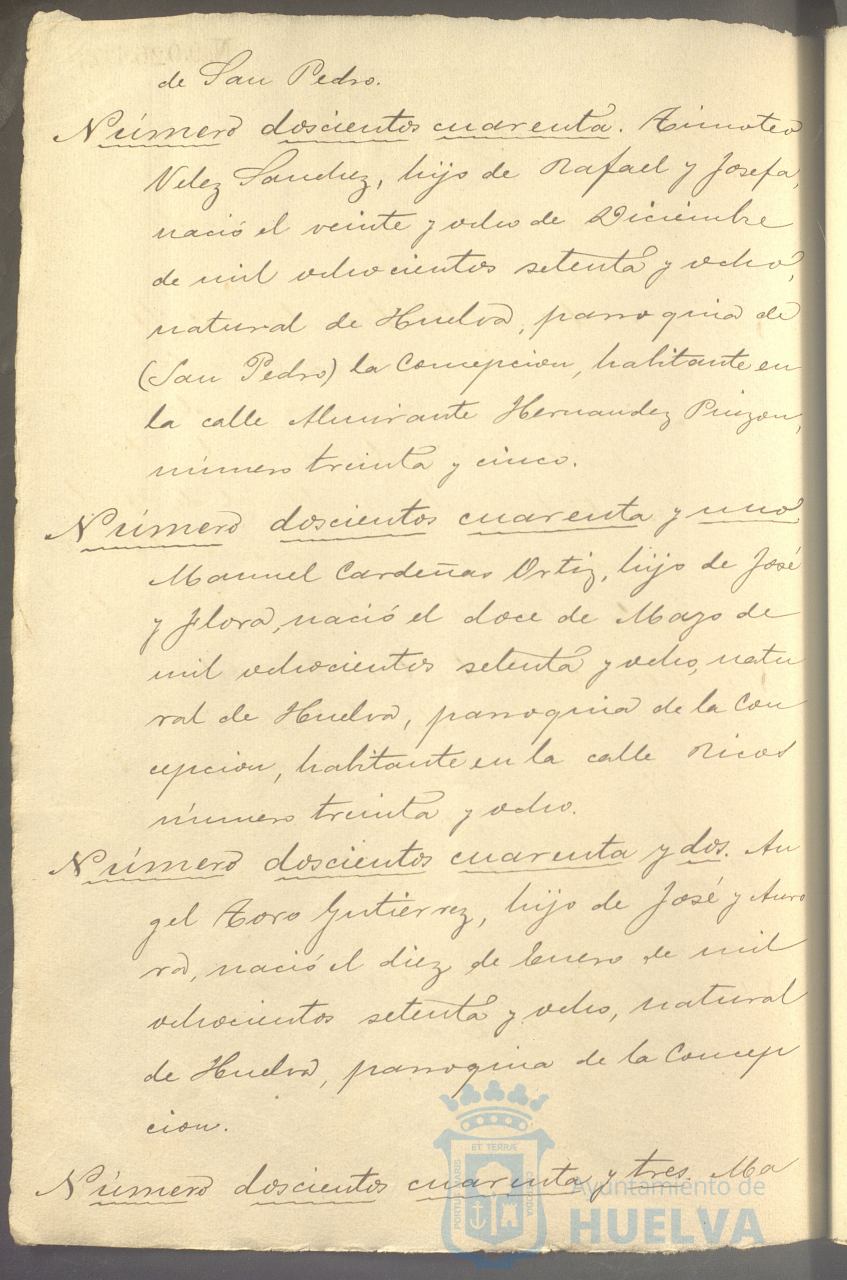 de San Pedro.
Número doscientos cuarenta. Timoteo
Velez Sanchez, hijo de Rafael y Josefa,
nació el veinte y ocho de Diciembre
de mil ochocientos setenta y ocho,
natural de Huelva, parroquia de
(San Pedro) la Concepcion, habitante en
la calle Almirante Hernandez Pinzon,
número treinta y cinco.
Número doscientos cuarenta y uno
Manuel Cardeñas Ortiz, hijo de José
y Flora, nació el doce de Mayo de
mil ochocientos setenta y ocho, natu
ral de Huelva, parroquia de la Con
cepcion, habitante en la calle Ricos
número treinta y ocho.
Número doscientos cuarenta y dos. An
gel Toro Gutiérrez, hijo de José y Auro
ra, nació el diez de Enero de mil
ochocientos setenta y ocho, natural
de Huelva, parroquia de la Concep
cion.
Número doscientos cuarenta y tres. Ma
ET TERRÆ
PORTUS MARIS
CUSTODIA
Ayuntamiento de
HUELVA